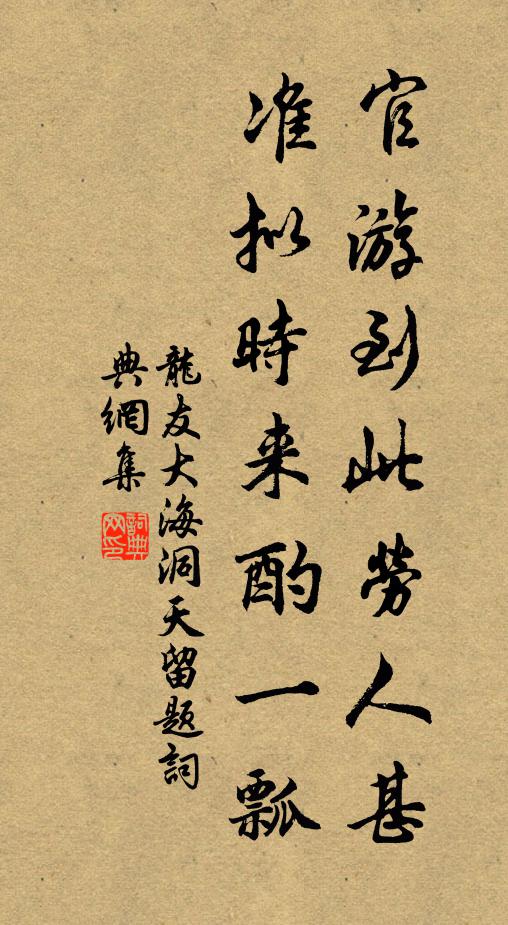 官游到此勞人甚
准拟時来酌一瓢
龍友大海洞天留题詞
典網集
詞典
网印